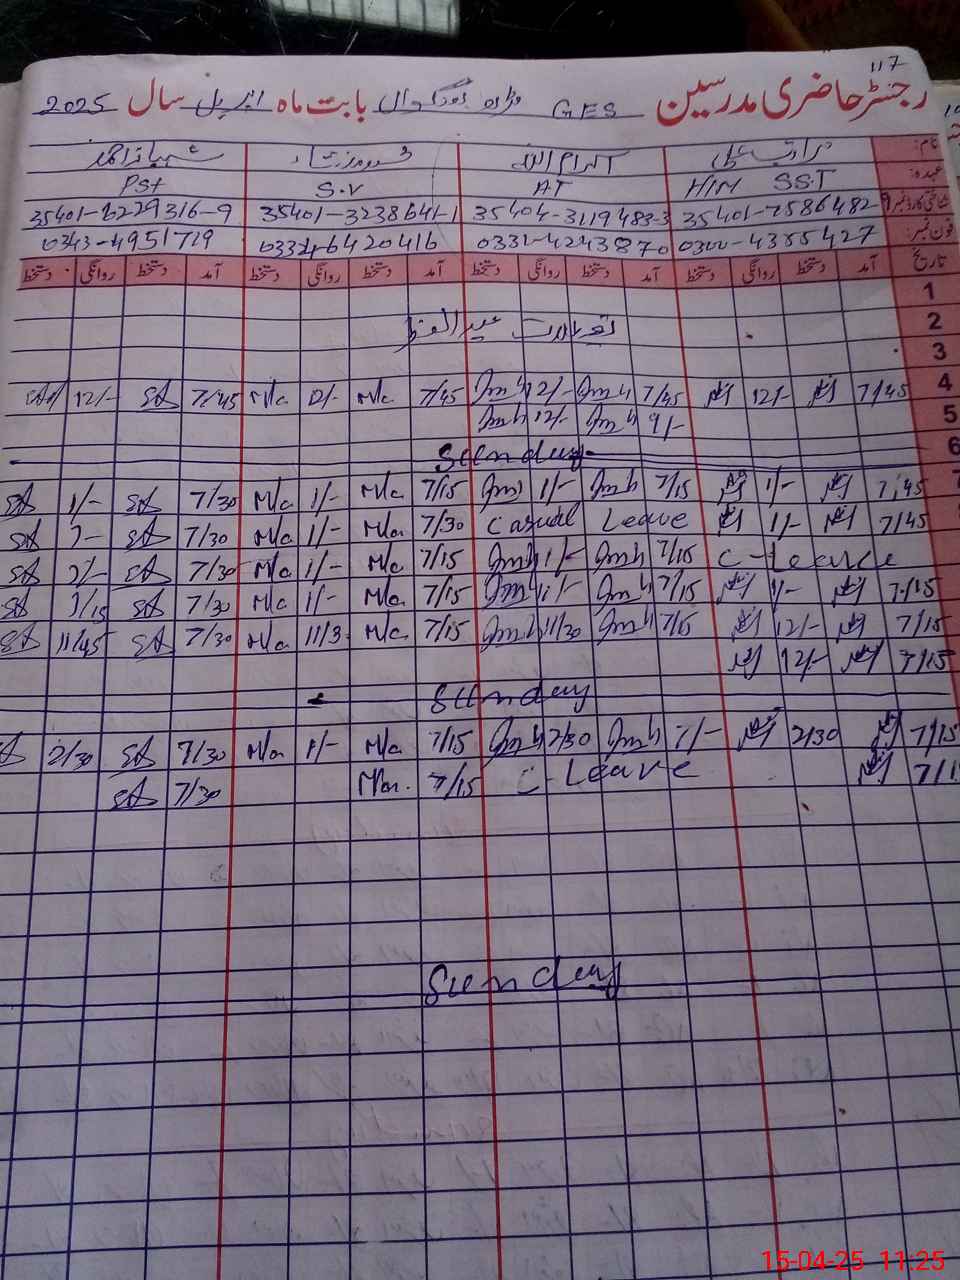 117
رجسٹر حاضری مدرسین GES بابت ماہ اپریل سال 2025
نام: اکرام اللہ شہباز احمد
عہدہ: H/M SST AT S.V PST
شناختی کارڈ نمبر 35401-7586482-9 35404-3119483-3 35401-3238641-1 35401-6229316-9
فون نمبر: 0300-4385427 0331-4243870 0334-6420416 0343-4951719
تاریخ آمد دستخط روانگی دستخط آمد دستخط روانگی دستخط آمد دستخط روانگی دستخط آمد دستخط روانگی دستخط
1
2 تعطیلات عید الفطر
3
4 7/45 12/- 7/45 12/- 7/45 M/a 12/- M/a 7/45 SA 12/- SA
5 9/- 12/-
6 Sunday
7 7/45 1/- 7/15 1/- 7/15 M/a 1/- M/a 7/30 SA 1/- SA
7/45 1/- Casual Leave 7/30 M/a 1/- M/a 7/30 SA SA
C-Leave 7/15 1/- 7/15 M/a 1/- M/a 7/30 SA SA
7/15 1/- 7/15 1/- 7/15 M/a 1/- M/a 7/30 SA SA
7/15 12/- 7/15 11/30 7/15 M/a 11/3 M/a 7/30 SA 11/45 SA
7/15 12/-
Sunday
7/15 2/30 7/- 2/30 7/15 M/a 1/- M/a 7/30 SA 2/30 SA
C-Leave 7/15 M/a 7/30 SA
Sunday
15-04-25 11:25